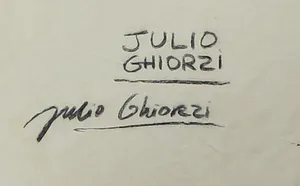 JULIO
GHIORZI
Julio Ghiorzi